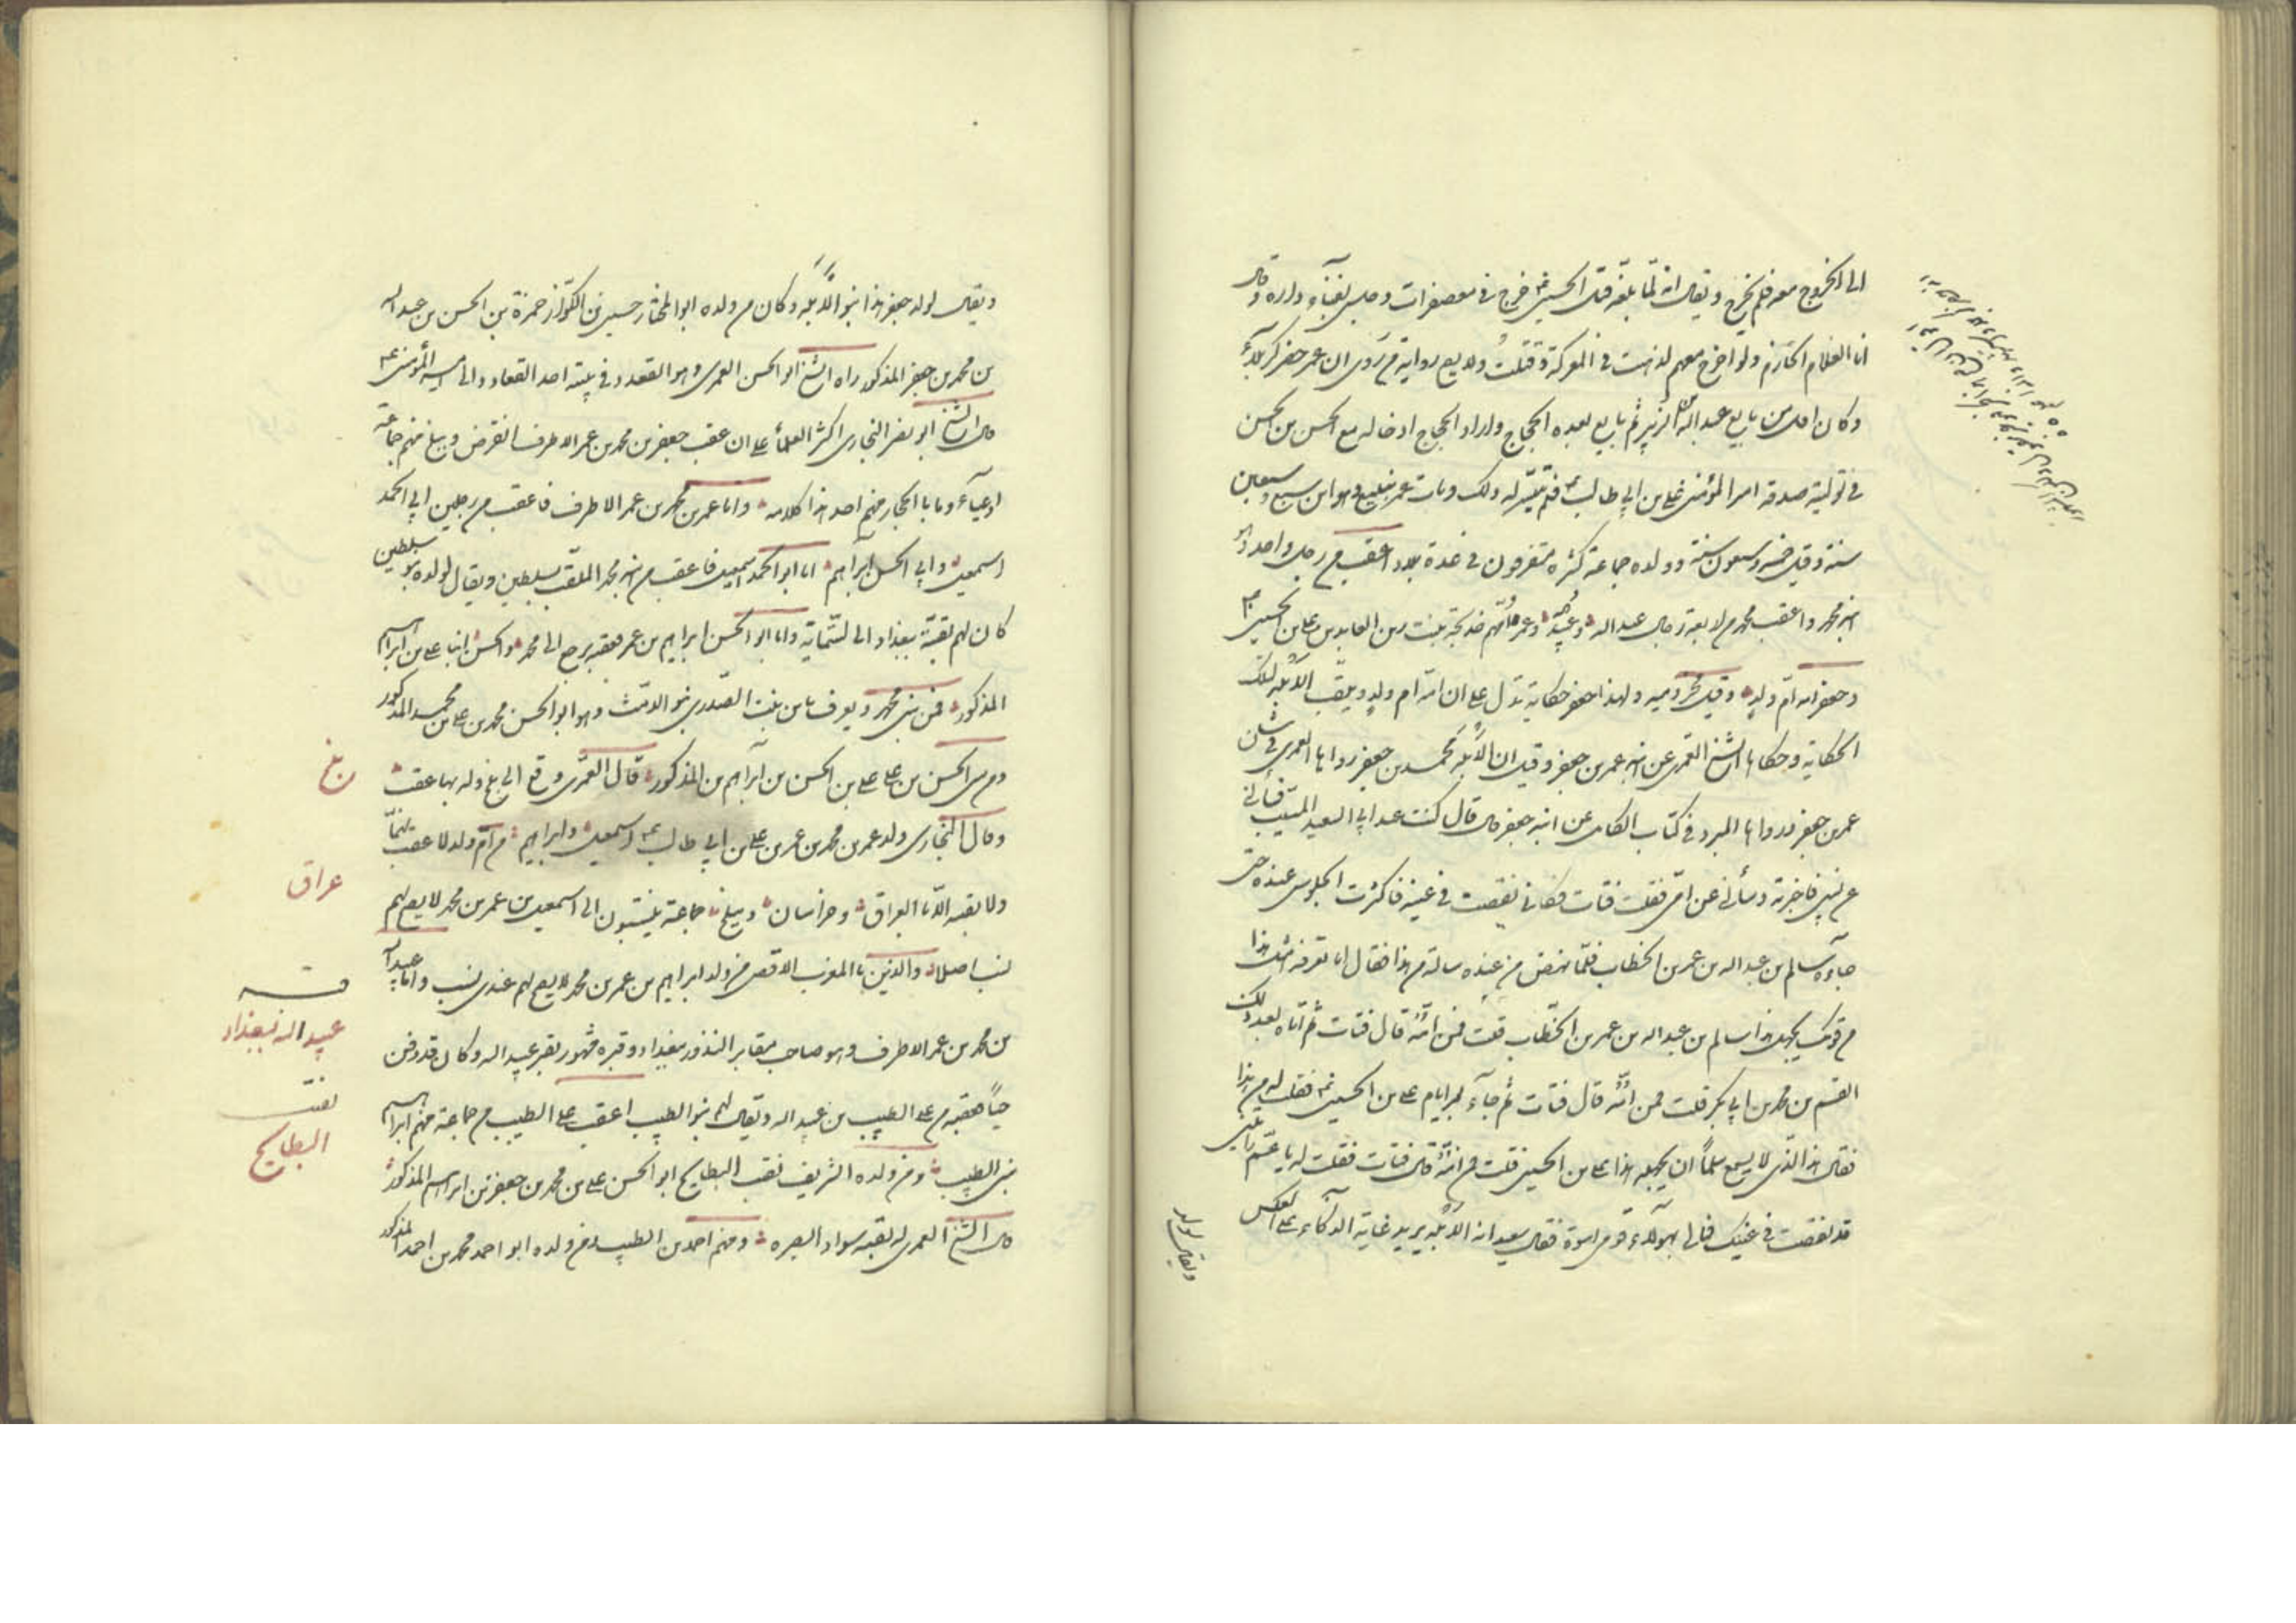 الى الخروج معه فلم يخرج ويقال انه لما بلغه قتل الحسين ع خرج في معصفرات وجلس بفناء داره وقال
انا الغلام الحازم ولو اخرج معهم لذهبت في المعركة وقتلت ولا يصح رواية من روى ان عمر حضر كربلاء
وكان اول من بايع عبد الله بن الزبير ثم بايع بعده الحجاج واراد الحجاج ادخاله مع الحسن بن الحسن
في تولية صدقة امير المؤمنين علي بن ابي طالب ع فلم يتيسر له ذلك ومات عمر بينبع وهو ابن سبع وسبعين
سنة وقيل خمس وسبعون سنة وولده جماعة كثيرة متفرقون في عدة بلاد اعقب من رجل واحد وهو
ابنه محمد واعقب محمد من اربعة رجال عبد الله وعبيد الله وعمر وامهم خديجة بنت زين العابدين علي بن الحسين ع
وجعفر امه ام ولد وقيل مخزومية ولهذا جعفر حكاية تدل على ان امه ام ولد ويلقب الابله لتلك
الحكاية وحكاها الشيخ العمري عن ابنه عمر بن جعفر وقيل ان الابله محمد بن جعفر رواها العمري في شأن
عمر بن جعفر ورواها المبرد في كتاب الكامل عن ابنه جعفر قال قال كنت عند ابي السعيد المسيب فسألني
عن نسبي فاخبرته وسألني عن امي فقلت فتاة فكاني نقصت في عينه فاكثرت الجلوس عنده حتى
جاءه سالم بن عبد الله بن عمر بن الخطاب فلما نهض من عنده سالته من هذا فقال اما تعرفه امثل هذا
من قومك يجهل هذا سالم بن عبد الله بن عمر بن الخطاب قلت فمن امه قال فتاة ثم اتاه بعد ذلك
القسم بن محمد بن ابي بكر قلت فمن امه قال فتاة ثم جاءه بعد ايام علي بن الحسين ع فقلت له من هذا
فقال هذا الذي لا يسع مسلما ان يجهله هذا علي بن الحسين قلت من امه قال فتاة فقلت له يا عم رأيتني
قد نقصت في عينك فمالي بهؤلاء قوم اسوة فقال سعيد انه الابله يريد غاية الذكاء على العكس
ويقال لولد
ويقال لولد جعفر هذا بنو الابله وكان من ولده ابو المختار حسين بن الكوّاز حمزة بن الحسن بن عبد الله
بن محمد بن جعفر المذكور راه الشيخ ابو الحسن العمري وهو القعدد في بيته احد القعاد والى امير المؤمنين ع
قال الشيخ ابو نصر البخاري اكثر العلماء على ان عقب جعفر بن محمد بن عمر الاطرف انقرض وببلخ منهم جماعة
ادعياء وما بالحجاز منهم احد هذا كلامه واما عمر بن محمد بن عمر الاطرف فاعقب من رجلين ابي الحمد
اسمعيل وابي الحسن ابراهيم اما ابو الحمد اسمعيل فاعقب من ابنه محمد الملقب بسلطين ويقال لولده بنو سلطين
كان لهم بقية ببغداد الى الستمائة واما ابو الحسن ابراهيم بن عمر فعقبه يرجع الى محمد والحسن ابنا علي بن ابراهيم
المذكور فمن بني محمد ويعرف بابن بنت الصدري بنو الدمث وهو ابو الحسن محمد بن علي بن محمد المذكور
ومن بني الحسن بن علي علي بن الحسن بن ابراهيم بن المذكور قال العمري وقع الى بلخ وله بها عقب
وقال البخاري ولد عمر بن محمد بن عمر بن علي بن ابي طالب ع اسمعيل وابراهيم من ام ولد لا عقب لهما
ولا بقية الا بالعراق وخراسان وببلخ جماعة ينتسبون الى اسمعيل بن عمر بن محمد لا يصح لهم
نسب اصلا والذين بالمغرب الاقصى من ولد ابراهيم بن عمر بن محمد لا يصح لهم عندي نسب واما عبيد الله
بن محمد بن عمر الاطرف وهو صاحب مقابر النذور ببغداد وقبره مشهور بقبر عبيد الله وكان قد دفن
حيا فعقبه من علي الطبيب بن عبيد الله ويقال لهم بنو الطبيب اعقب علي الطبيب من جماعة منهم ابراهيم
بني الطبيب ومن ولده الشريف نقيب البطايح ابو الحسن علي بن محمد بن جعفر بن ابراهيم المذكور
قال الشيخ العمري له بقية بسواد البصره ومنهم احمد بن الطبيب فمن ولده ابو احمد محمد بن احمد المذكور
بلخ
عراق
قبر
عبيد الله ببغداد
نقيب
البطايح